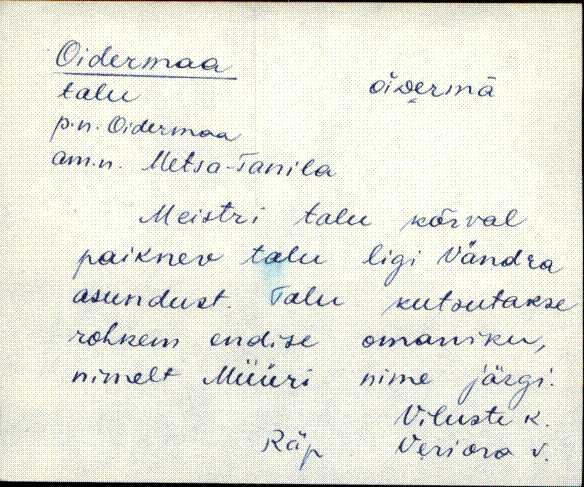 Oidermaa
talu
õiᴅermä
p.n. Oidermaa
am.n. Metsa-Tanila
Meistri talu kõrval
paiknev talu ligi Vändra
asundust. Talu kutsutakse
rohkem endise omaniku,
nimelt Müüri nime järgi.
Viluste k.
Räp Veriora v.